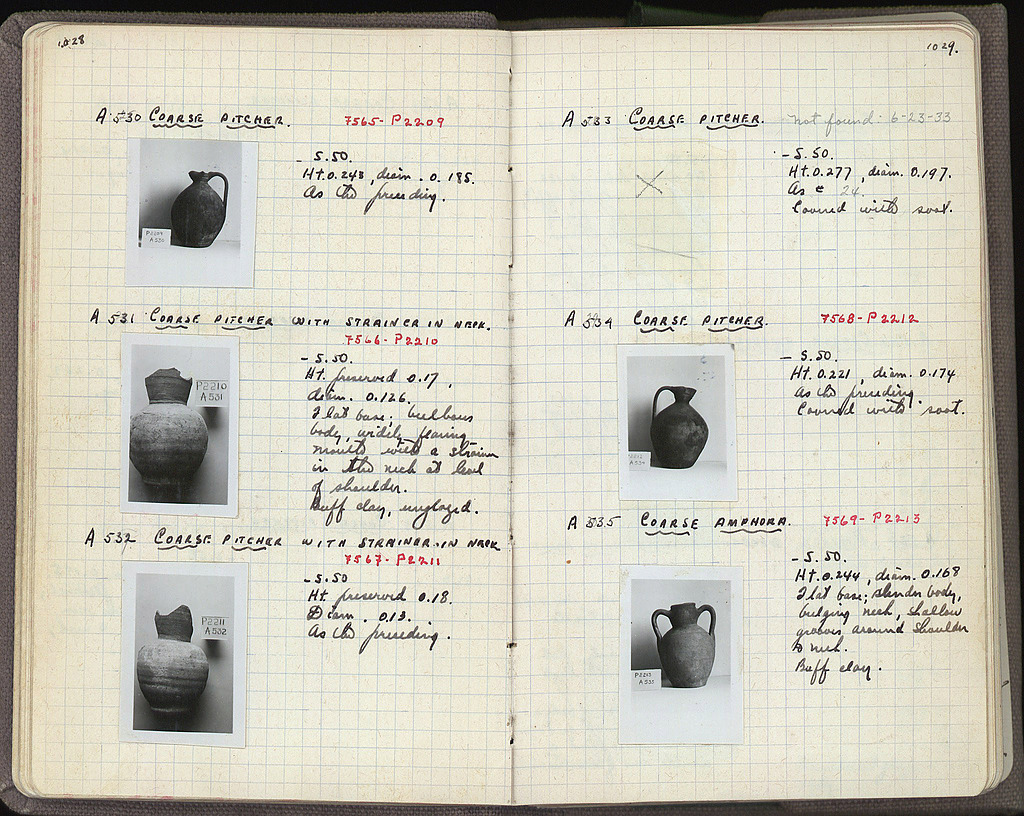 1028
A 530 COARSE PITCHER. 7565-P2209
P2209
A 530
- S.50.
Ht. 0.243, diam. 0.185.
As the preceding.
A 531 COARSE PITCHER WITH STRAINER IN NECK.
7566-P2210
P2210
A 531
- S.50.
Ht. preserved 0.17,
diam. 0.126.
Flat base; bulbous
body, widely flaring
mouth with a strainer
in the neck at level
of shoulder.
Buff clay, unglazed.
A 532 COARSE PITCHER WITH STRAINER IN NECK
7567-P2211
P2211
A 532
- S.50
Ht. preserved 0.18.
Diam. 0.13.
As the preceding.
1029.
A 533 COARSE PITCHER. not found: 6-23-33
- S.50.
Ht. 0.277, diam. 0.197.
As 24.
Covered with soot.
A 534 COARSE PITCHER. 7568-P2212
P2212
A 534
- S.50.
Ht. 0.221, diam. 0.174
As the preceding.
Covered with soot.
A 535 COARSE AMPHORA. 7569-P2213
P2213
A 535
- S.50.
Ht. 0.244, diam. 0.168
Flat base; slender body,
bulging neck, shallow
grooves around shoulder
& neck.
Buff clay.